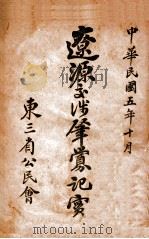 中華民國五年十月
遼源交涉肇釁記實
東三省公民會
http://www.mtoou.info